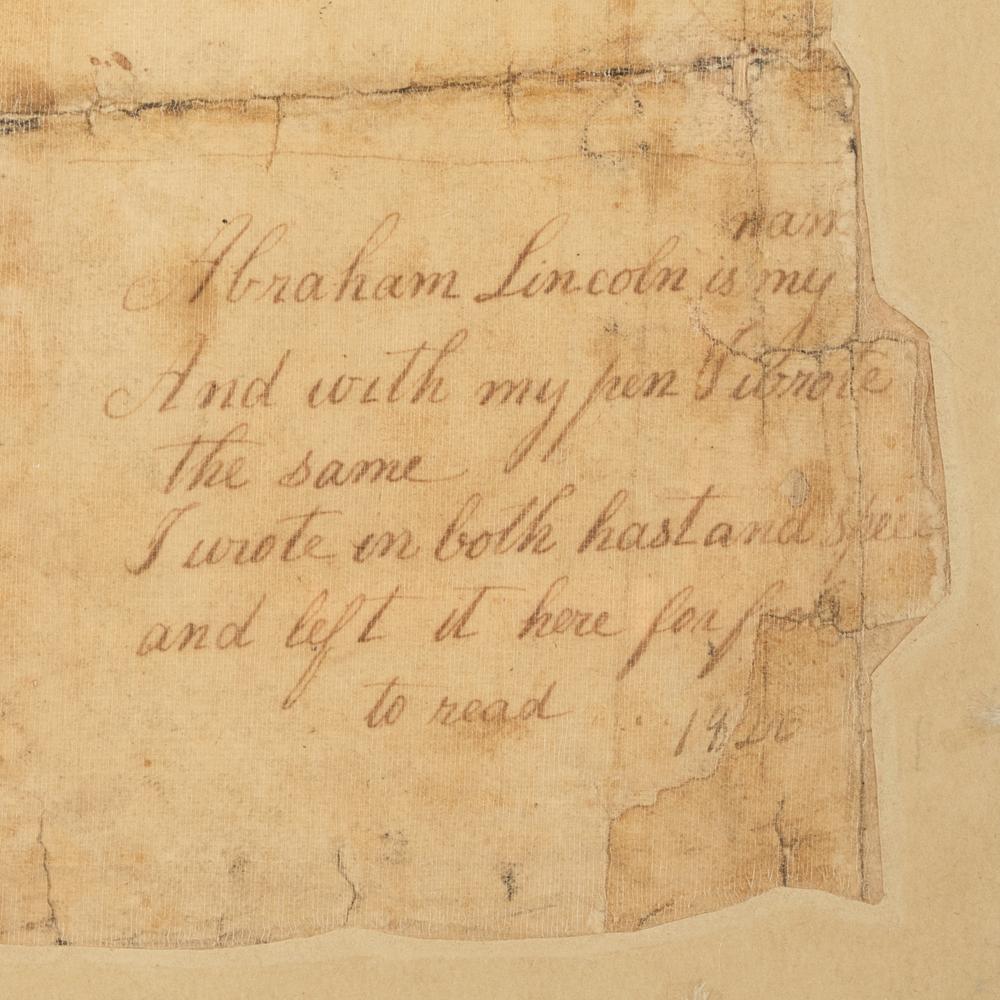 nam
Abraham Lincoln is my
And with my pen I wrote
the same
I wrote in both hast and speed
and left it here for fools
to read